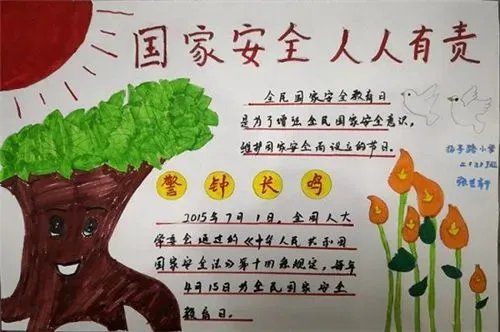 国家安全 人人有责
全民国家安全教育日
是为了增强全民国家安全意识，
维护国家安全而设立的节日。
扬子路小学
警钟长鸣
2015年7月1，全国人大
学委会通过的《中华人民共和国
国家安全法》第十四条规定，每年
4月15日为全民国家安全
教育日。